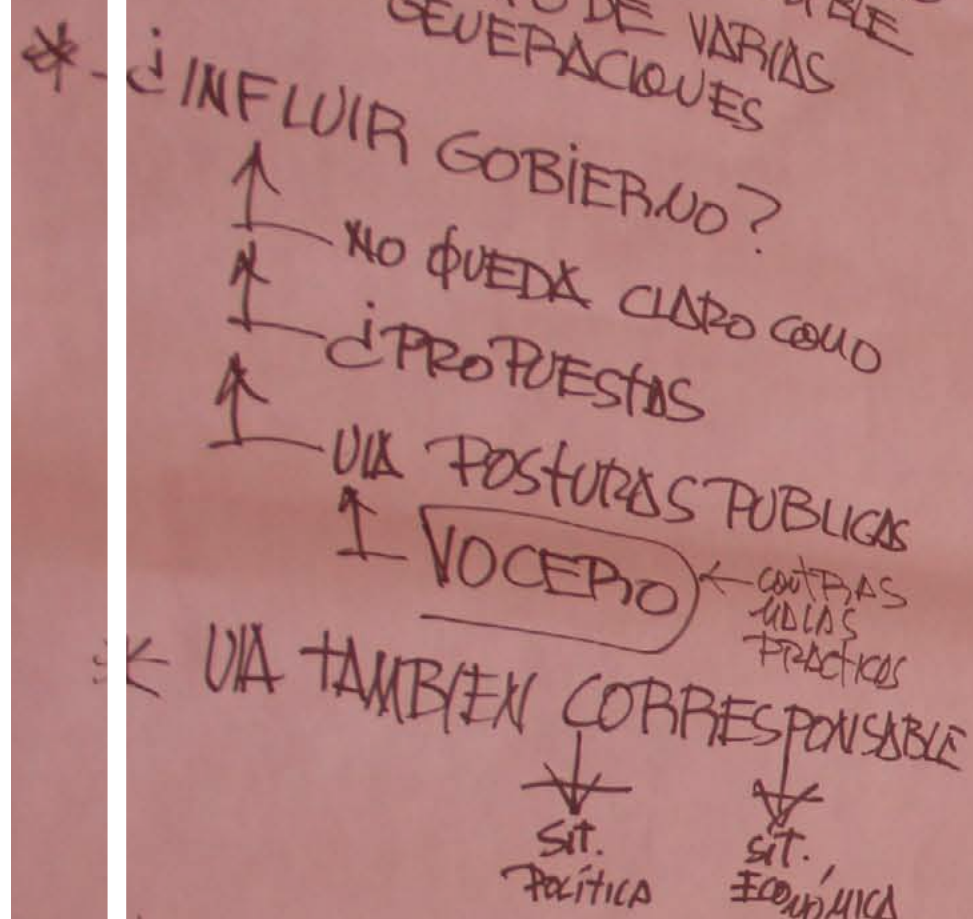 DE VARIAS
GENERACIONES
* - ¿INFLUIR GOBIERNO?
NO QUEDA CLARO COMO
¿PROPUESTAS
VIA POSTURAS PUBLICAS
VOCERO ← CONTRAS
MALAS
PRACTICAS
* VIA TAMBIEN CORRESPONSABLE
SIT.
POLÍTICA
SIT.
ECONÓMICA